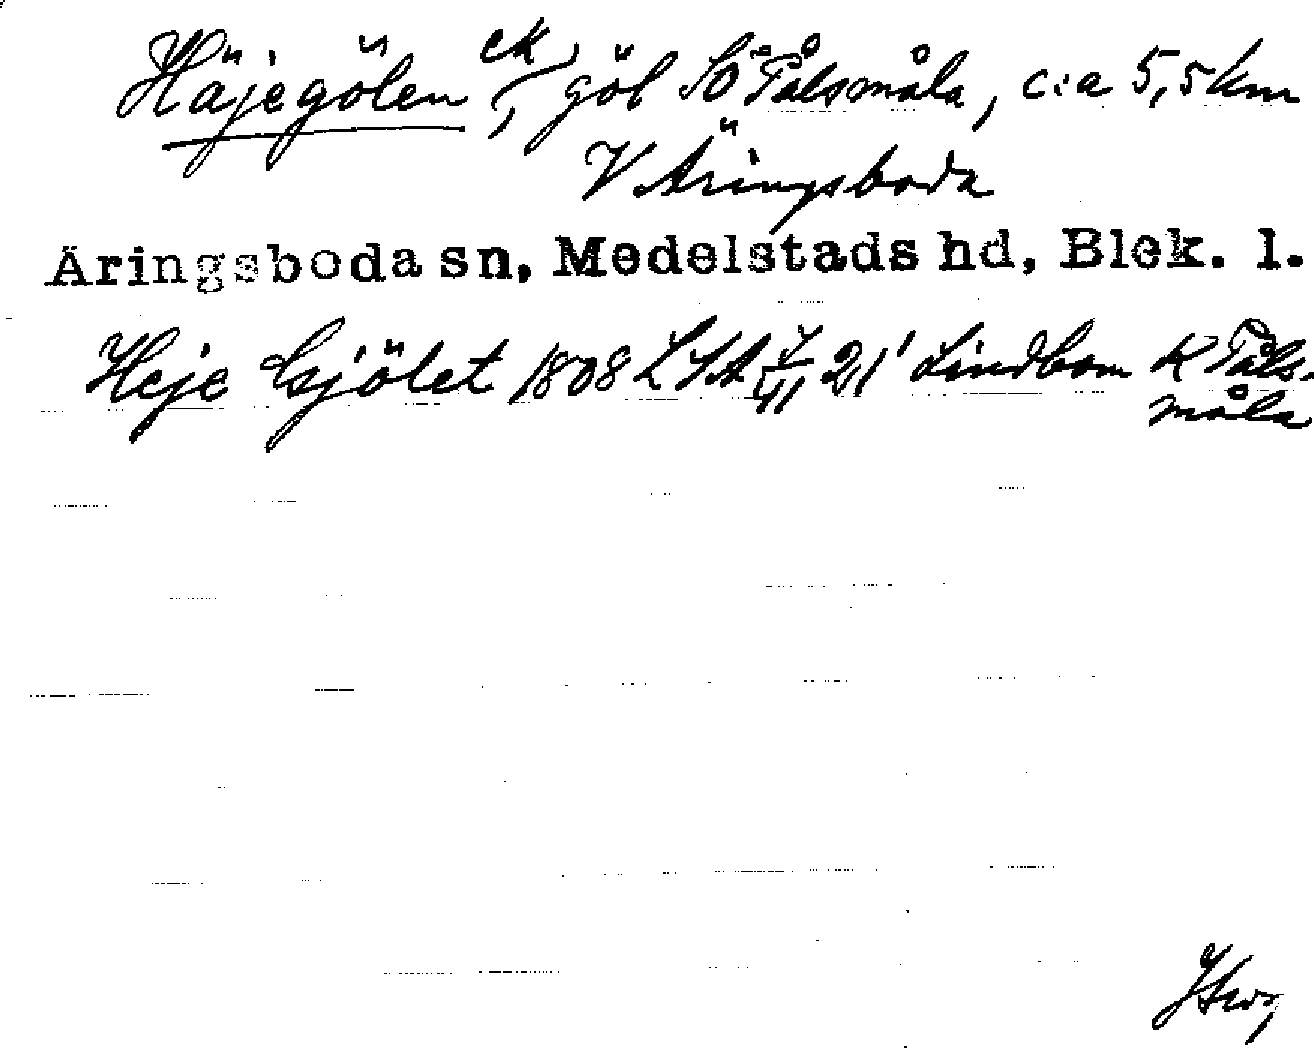 Häjegölen ek, göl SÖ Pålsmåla, c:a 5,5 km
V Äringsboda
Äringsboda sn, Medelstads hd, Blek. l.
Heje Gjölet 1808 LSA 21 Lindbom K Påls-
måla